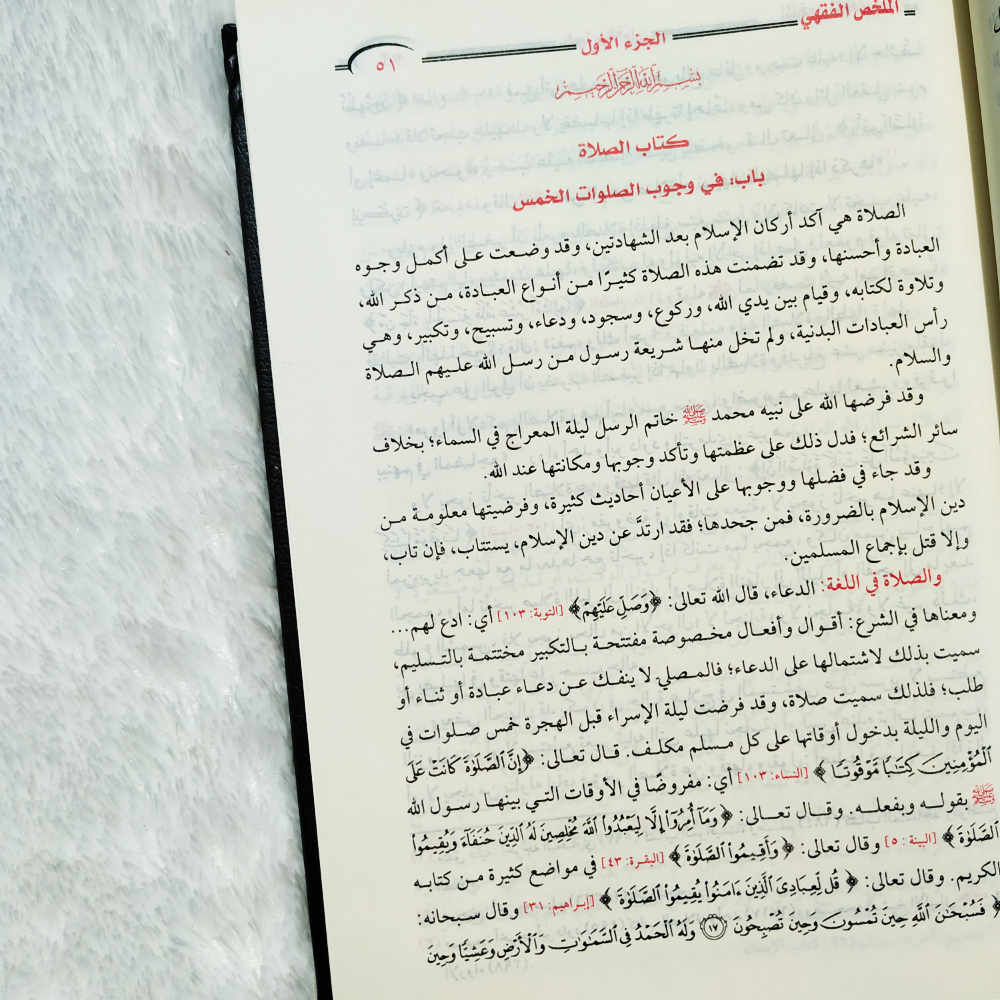 الملخص الفقهي
الجزء الأول
٥١
بسم الله الرحمن الرحيم
كتاب الصلاة
باب: في وجوب الصلوات الخمس
الصلاة هي آكد أركان الإسلام بعد الشهادتين، وقد وضعت على أكمل وجوه
العبادة وأحسنها، وقد تضمنت هذه الصلاة كثيرًا من أنواع العبادة، من ذكر الله،
وتلاوة لكتابه، وقيام بين يدي الله، وركوع، وسجود، ودعاء، وتسبيح، وتكبير، وهي
رأس العبادات البدنية، ولم تخل منها شريعة رسول من رسل الله عليهم الصلاة
والسلام.
وقد فرضها الله على نبيه محمد ﷺ خاتم الرسل ليلة المعراج في السماء؛ بخلاف
سائر الشرائع؛ فدل ذلك على عظمتها وتأكد وجوبها ومكانتها عند الله.
وقد جاء في فضلها ووجوبها على الأعيان أحاديث كثيرة، وفرضيتها معلومة من
دين الإسلام بالضرورة، فمن جحدها؛ فقد ارتدَّ عن دين الإسلام، يستتاب، فإن تاب،
وإلا قتل بإجماع المسلمين.
والصلاة في اللغة: الدعاء، قال الله تعالى: ﴿وَصَلِّ عَلَيْهِمْ﴾ [التوبة: ١٠٣] أي: ادع لهم...
ومعناها في الشرع: أقوال وأفعال مخصوصة مفتتحة بالتكبير مختتمة بالتسليم،
سميت بذلك لاشتمالها على الدعاء؛ فالمصلي لا ينفك عن دعاء عبادة أو ثناء أو
طلب؛ فلذلك سميت صلاة، وقد فرضت ليلة الإسراء قبل الهجرة خمس صلوات في
اليوم والليلة بدخول أوقاتها على كل مسلم مكلف. قال تعالى: ﴿إِنَّ ٱلصَّلَوٰةَ كَانَتْ عَلَى
ٱلْمُؤْمِنِينَ كِتَٰبًا مَّوْقُوتًا﴾ [النساء: ١٠٣] أي: مفروضًا في الأوقات التي بينها رسول الله
ﷺ بقوله وبفعله. وقال تعالى: ﴿وَمَآ أُمِرُوٓا۟ إِلَّا لِيَعْبُدُوا۟ ٱللَّهَ مُخْلِصِينَ لَهُ ٱلدِّينَ حُنَفَآءَ وَيُقِيمُوا۟
ٱلصَّلَوٰةَ﴾ [البينة: ٥] وقال تعالى: ﴿وَأَقِيمُوا۟ ٱلصَّلَوٰةَ﴾ [البقرة: ٤٣] في مواضع كثيرة من كتابه
الكريم. وقال تعالى: ﴿قُل لِّعِبَادِىَ ٱلَّذِينَ ءَامَنُوا۟ يُقِيمُوا۟ ٱلصَّلَوٰةَ﴾ [إبراهيم: ٣١] وقال سبحانه:
﴿فَسُبْحَٰنَ ٱللَّهِ حِينَ تُمْسُونَ وَحِينَ تُصْبِحُونَ ١٧ وَلَهُ ٱلْحَمْدُ فِى ٱلسَّمَٰوَٰتِ وَٱلْأَرْضِ وَعَشِيًّا وَحِينَ